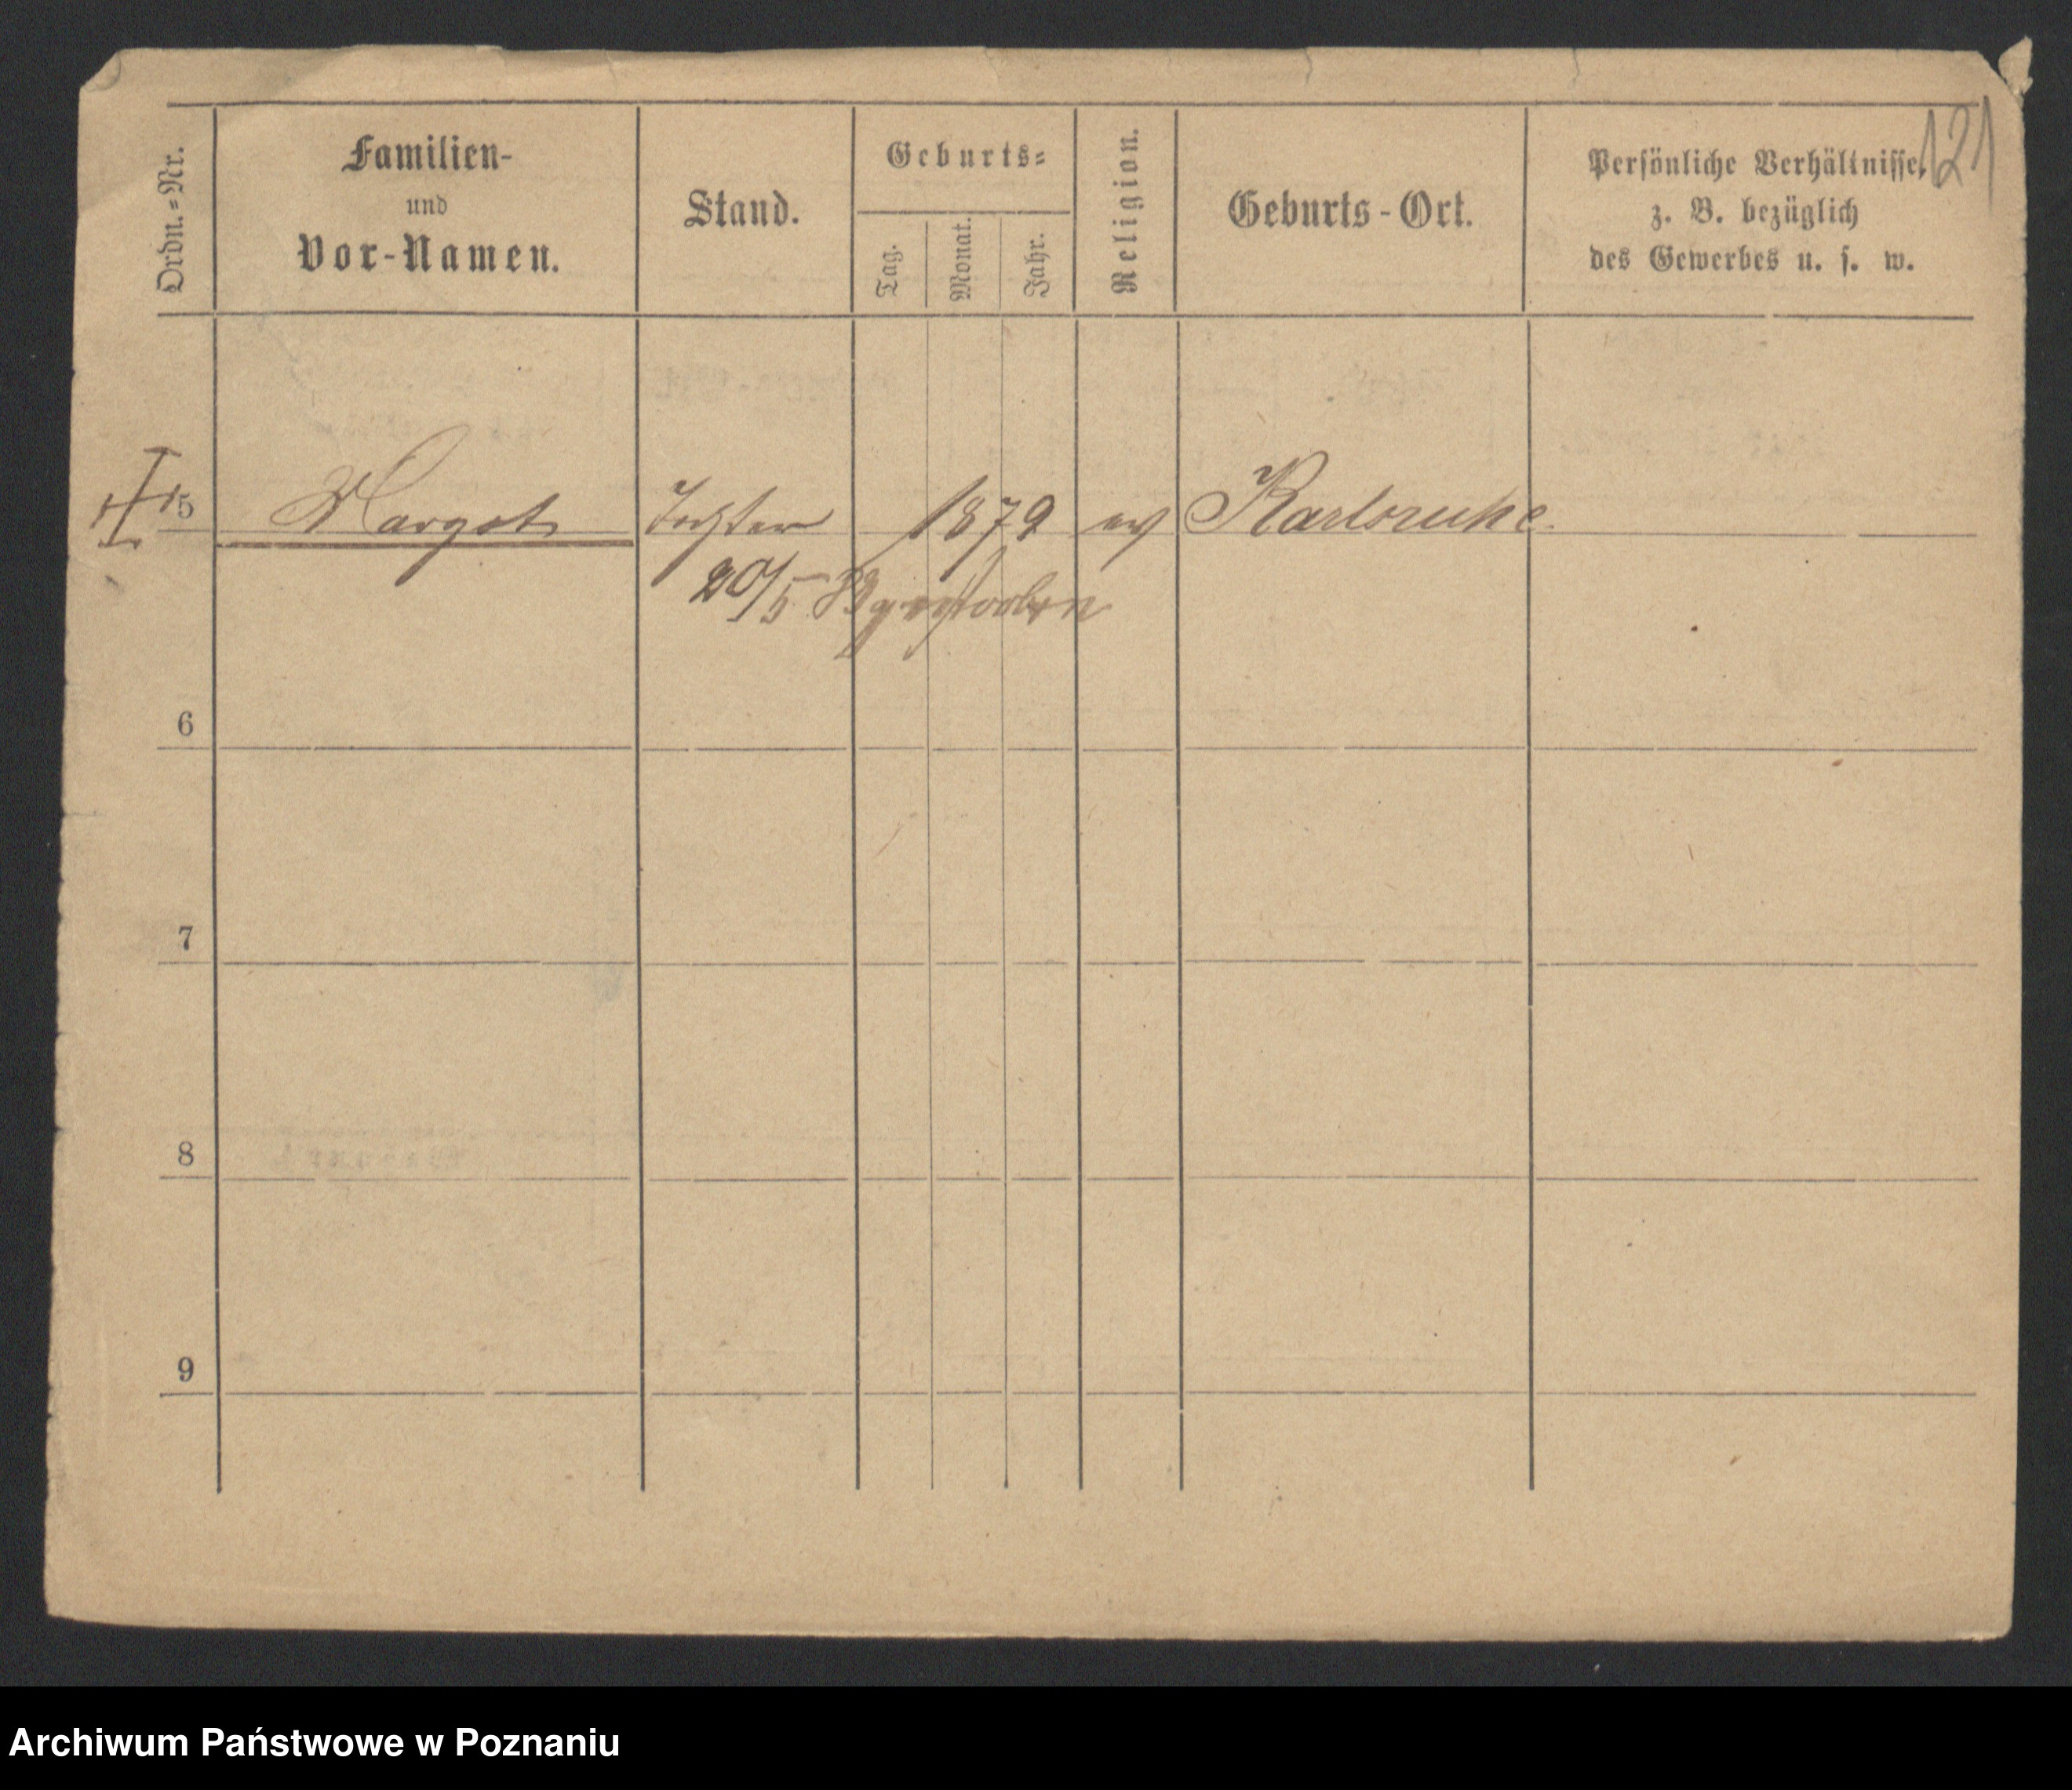 121
Ordn.-Nr.
Familien-
und
Vor-Namen.
Stand.
Geburts-
Tag.
Monat.
Jahr.
Religion.
Geburts-Ort.
Persönliche Verhältnisse,
z. B. bezüglich
des Gewerbes u. s. w.
5 Margot Tochter 1879 ev Karlsruhe.
20/5 gestorben
6
7
8
9
Archiwum Państwowe w Poznaniu